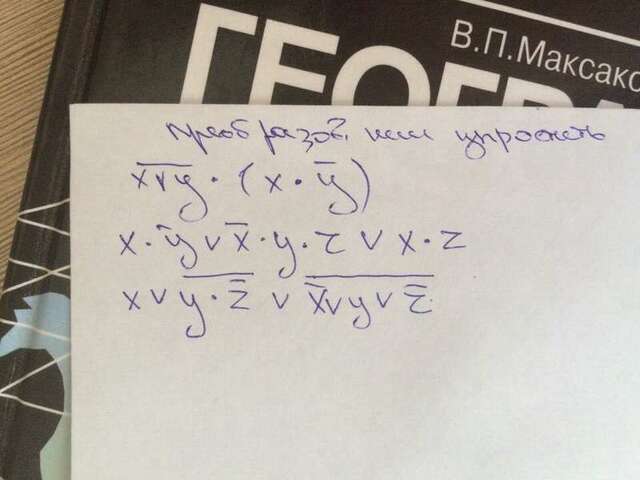 В.П.Максако
ГЕОГРА
преобразов. или упростить
$\overline{x \vee y} \cdot (x \cdot \bar{y})$
$x \cdot \bar{y} \vee \bar{x} \cdot y \cdot z \vee x \cdot z$
$x \vee \overline{y \cdot \bar{z}} \vee \overline{\bar{x} \vee y \vee \bar{z}}$